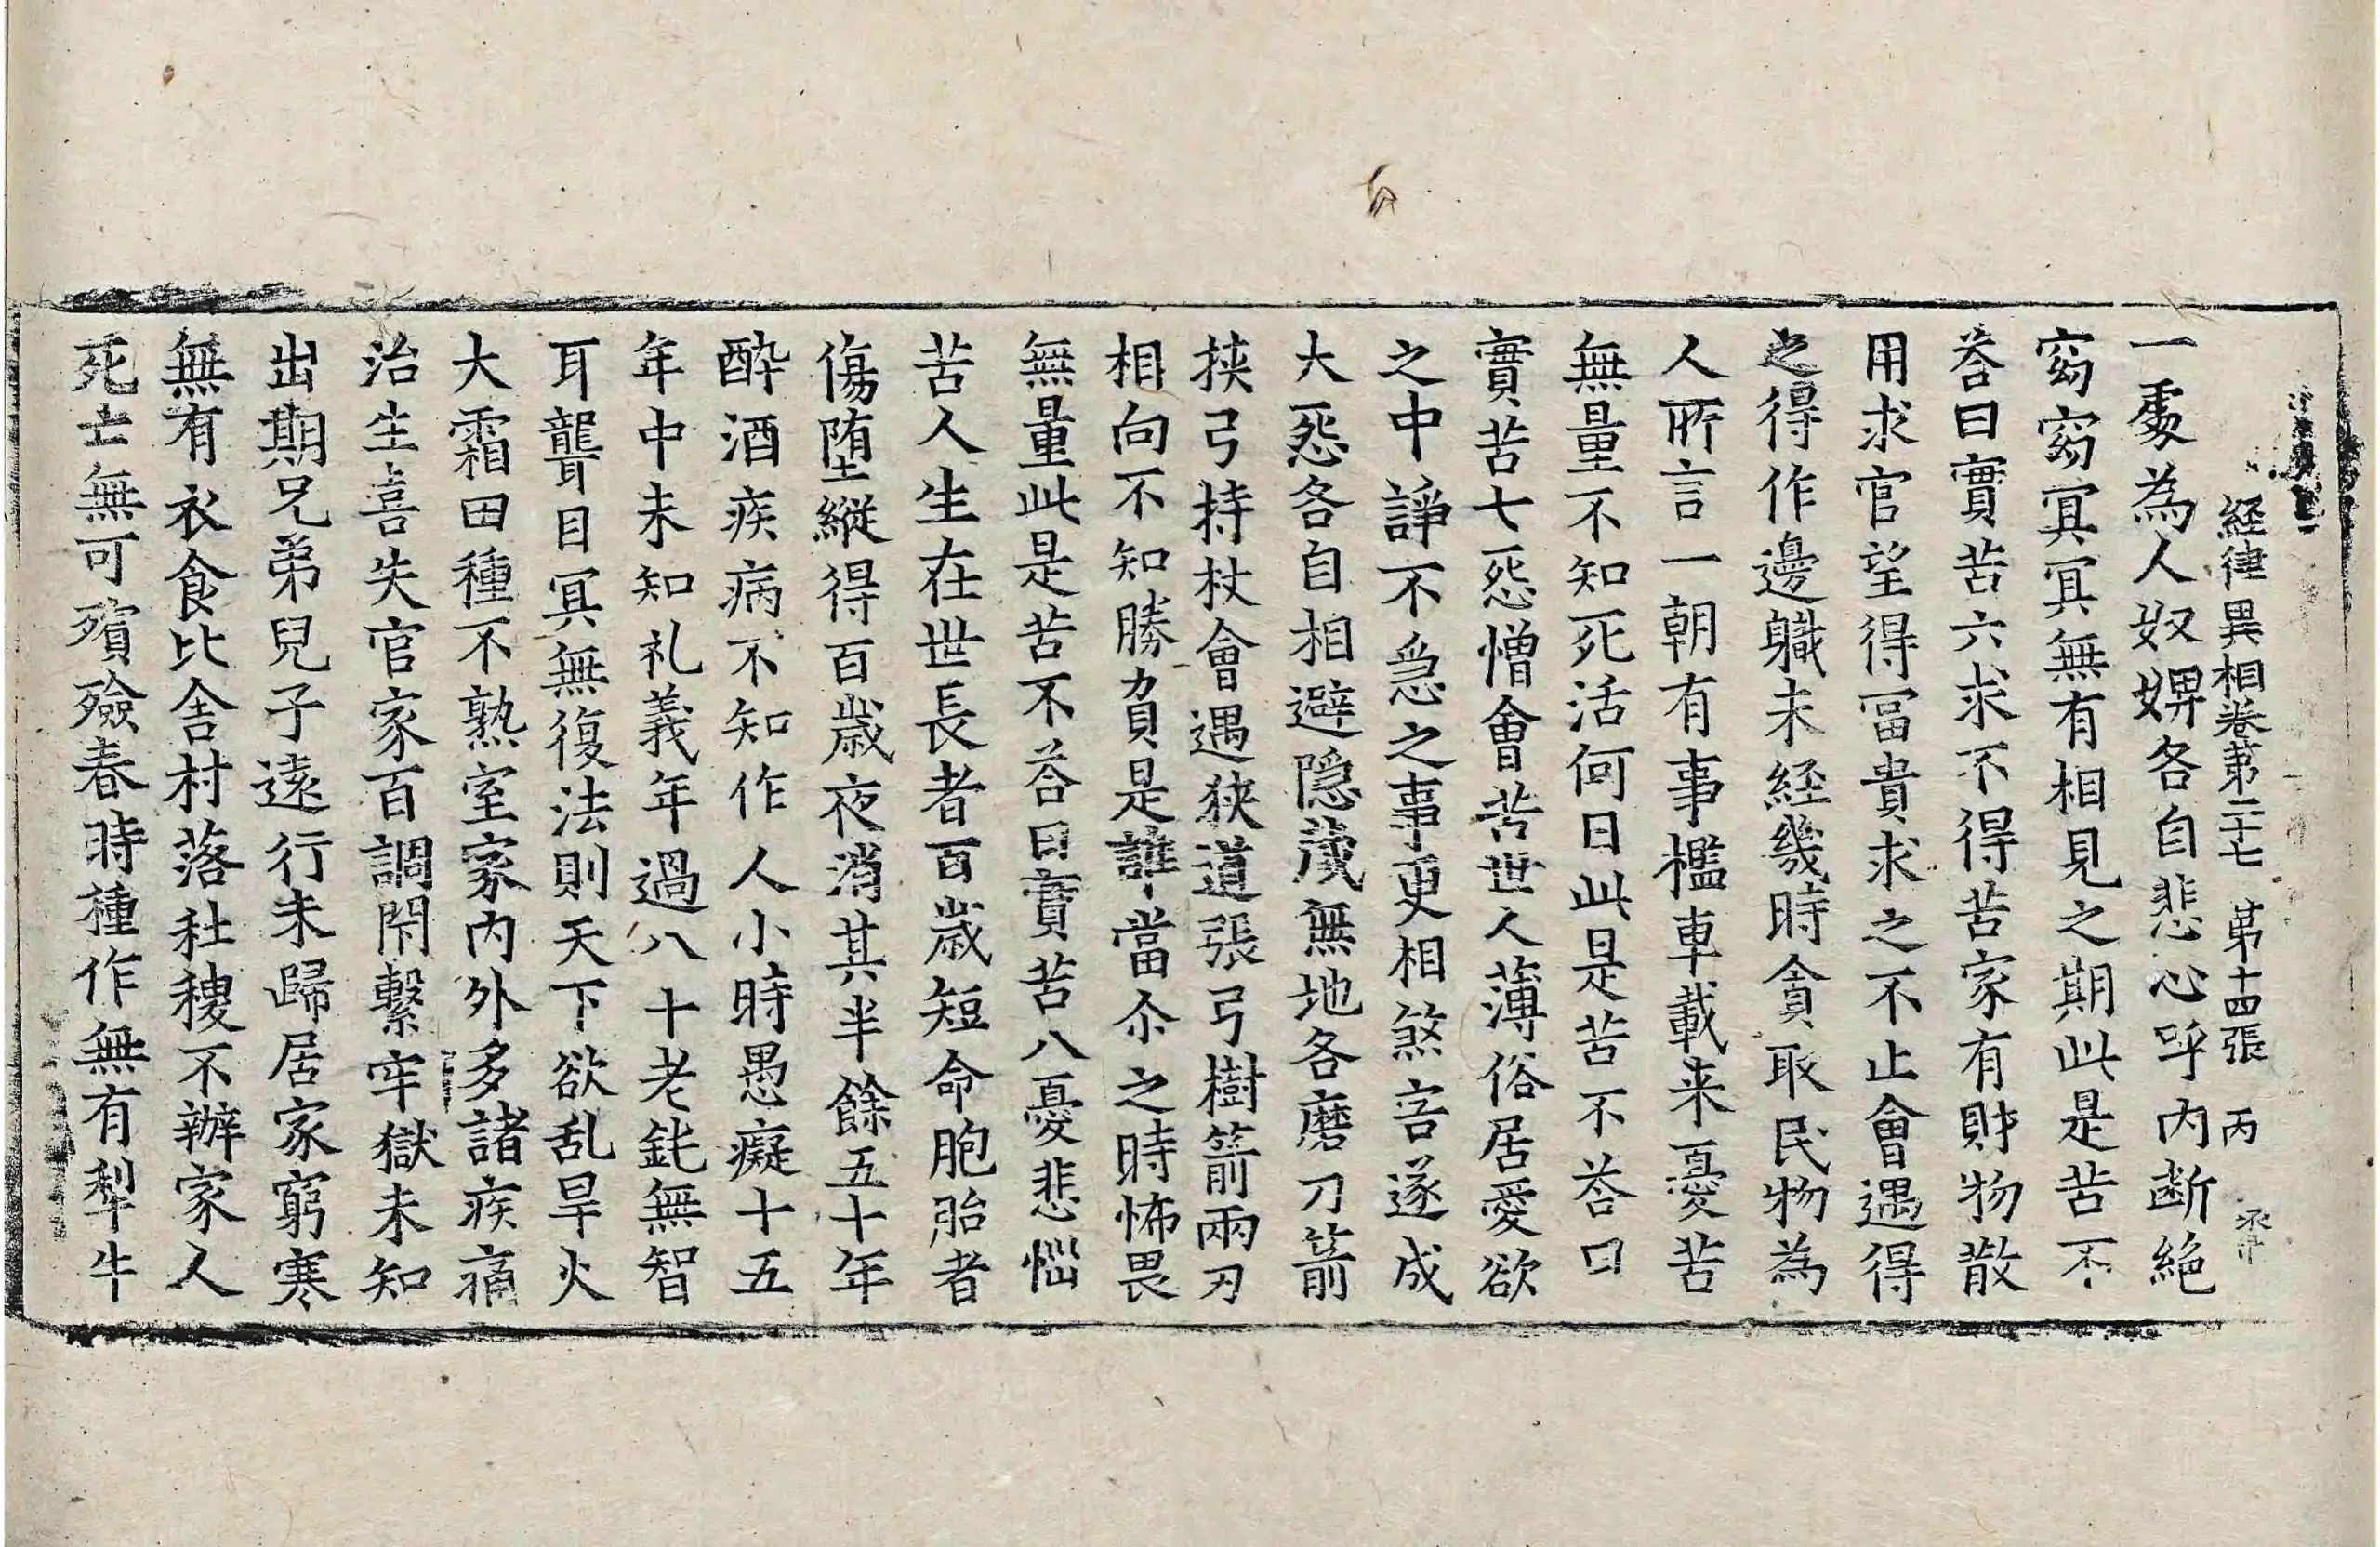 経律異相卷第二十七　第十四張　丙
一䖏為人奴婢各自悲心呼内断絶
窈窈冥冥無有相見之期此是苦不
荅曰實苦六求不得苦家有財物散
用求官望得冨貴求之不止會遇得
之得作邊軄未経幾時貪取民物為
人所言一朝有事檻車載来憂苦
無量不知死活何日此是苦不荅曰
實苦七怨憎會苦世人薄俗居愛欲
之中諍不急之事更相煞害遂成
大怨各自相避隠蔵無地各磨刀箭
挟弓持杖會遇狹道張弓樹箭兩刃
相向不知勝負是誰當尒之時怖畏
無量此是苦不荅曰實苦八憂悲惱
苦人生在世長者百歳短命胞胎者
傷堕縱得百歳夜消其半餘五十年
酔酒疾病不知作人小時愚癡十五
年中未知礼義年過八十老鈍無智
耳聾目冥無復法則天下欲乱旱火
大霜田種不熟室家内外多諸疾痛
治生喜失官家百調閇繫牢獄未知
出期兄弟兒子遠行未歸居家窮寒
無有衣食比舎村落社稷不辦家人
死亡無可殯殮春時種作無有犁牛